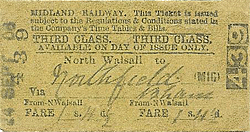 MIDLAND RAILWAY. This Ticket is issued
subject to the Regulations & Conditions stated in
the Company's Time Tables & Bills.
THIRD CLASS. THIRD CLASS.
AVAILABLE ON DAY OF ISSUE ONLY.
North Walsall to
Northfield (MIG)
Via
From-N Walsall From-N Walsall
FARE FARE
439
439